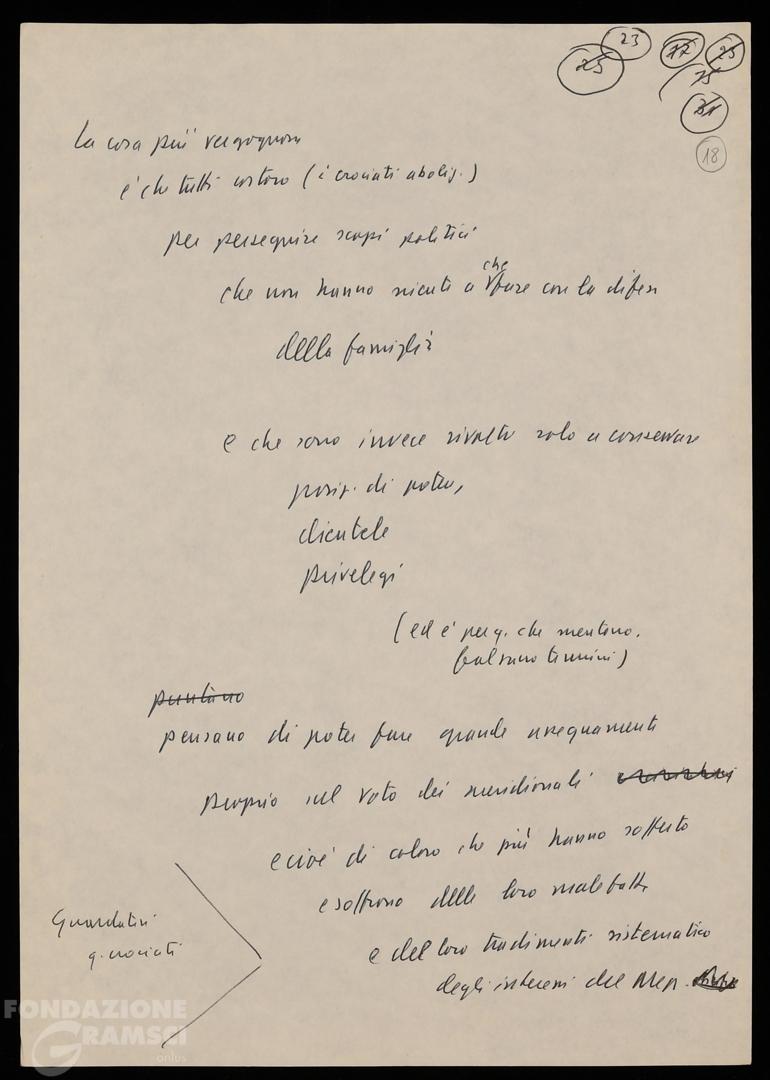 23
25
17
25
75
31
18
La cosa più vergognosa
è che tutti costoro (i crociati aboliz.)
per perseguire scopi politici
che non hanno niente a che fare con la difesa
della famiglia
e che sono invece rivolti solo a conservare
posiz. di potere,
clientele
privelegi
(ed è per q. che mentono.
falsano termini)
puntano
pensano di poter fare grande assegnamento
proprio sul voto dei meridionali
e cioè di coloro che più hanno sofferto
e soffrono delle loro malefatte
e del loro tradimento sistematico
degli interessi del Mer.
Guardateli
q. crociati
FONDAZIONE
GRAMSCI
onlus